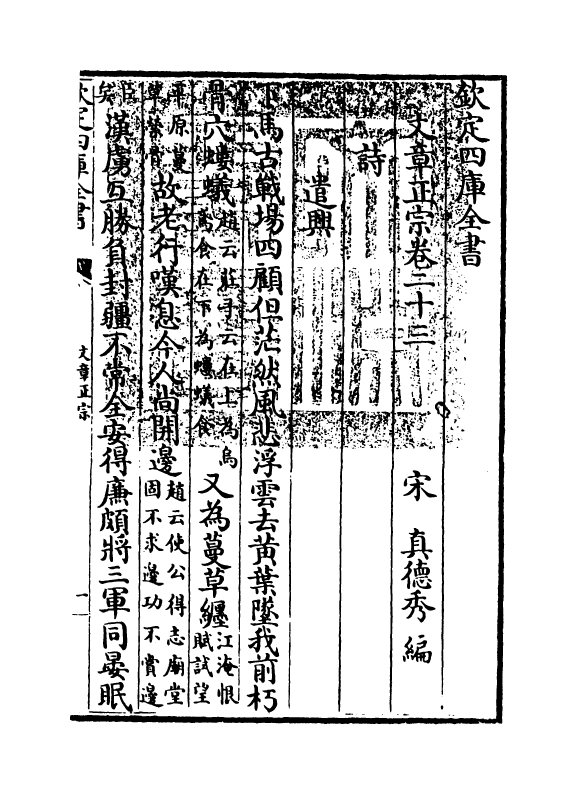 欽定四庫全書
文章正宗卷二十三
宋　真德秀　編
詩
遣興
下馬古戰場四顧但茫然風悲浮雲去黃葉墜我前朽
骨穴螻蟻趙云莊子云在上為烏鳶食在下為螻蟻食又為蔓草纏江淹恨賦試望平原蔓草縈骨
故老行嘆息今人尚開邊趙云使公得志廟堂固不求邊功不賞邊臣矣
漢虜互勝負封疆不常全安得廉頗將三軍同晏眠
欽定四庫全書
文章正宗
一